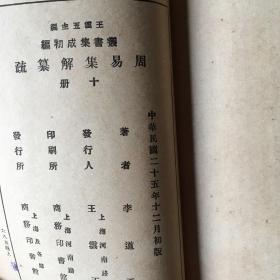 王雲五主編
叢書集成初編
周易集解纂疏
十冊
中華民國二十五年十二月初版
著者 李道
發行人 王雲
上海河南路
印刷所 商務印書館
上海河南路
發行所 商務印書館
上海及各埠